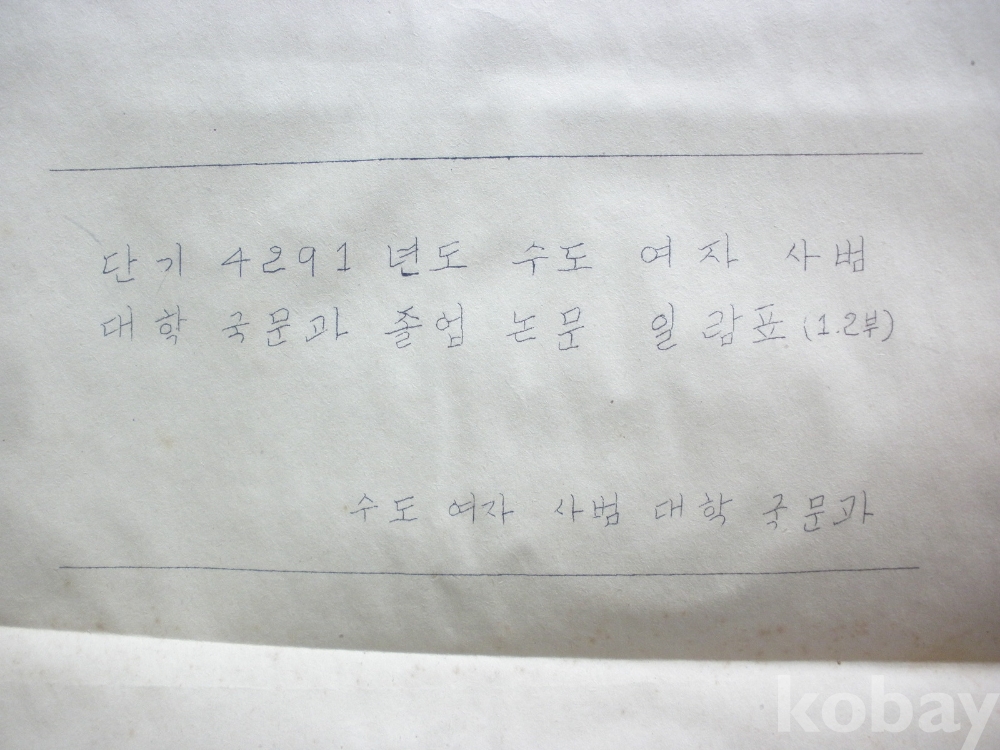 단기 4291 년도 수도 여자 사범
대학 국문과 졸업 논문 일람표 (1.2부)
수도 여자 사범 대학 국문과
kobay